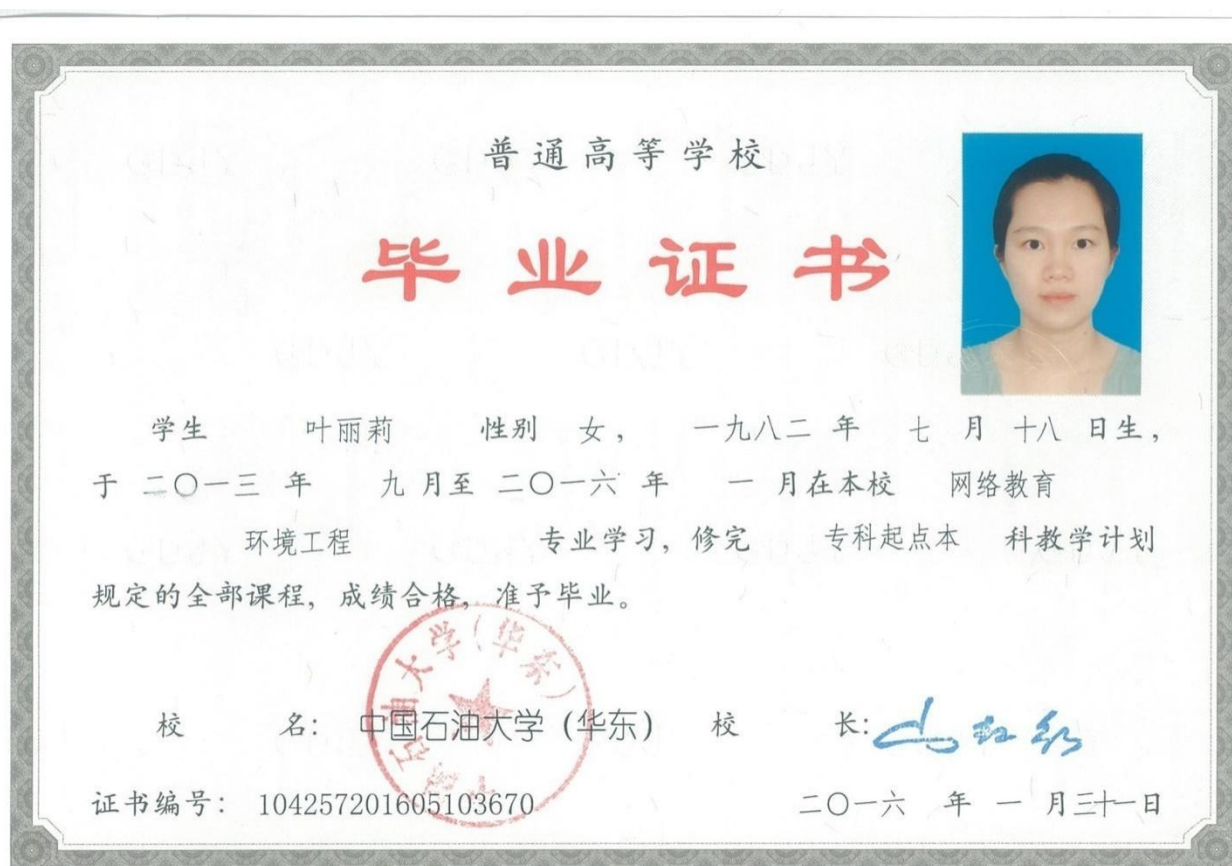 普通高等学校
毕业证书
学生 叶丽莉 性别 女, 一九八二 年 七 月 十八 日生,
于 二〇一三 年 九 月至 二〇一六 年 一 月在本校 网络教育
环境工程 专业学习, 修完 专科起点本 科教学计划
规定的全部课程, 成绩合格, 准予毕业。
校 名: 中国石油大学 (华东) 校 长: 山红红
证书编号: 104257201605103670
二〇一六 年 一 月三十一日
中国石油大学(华东)